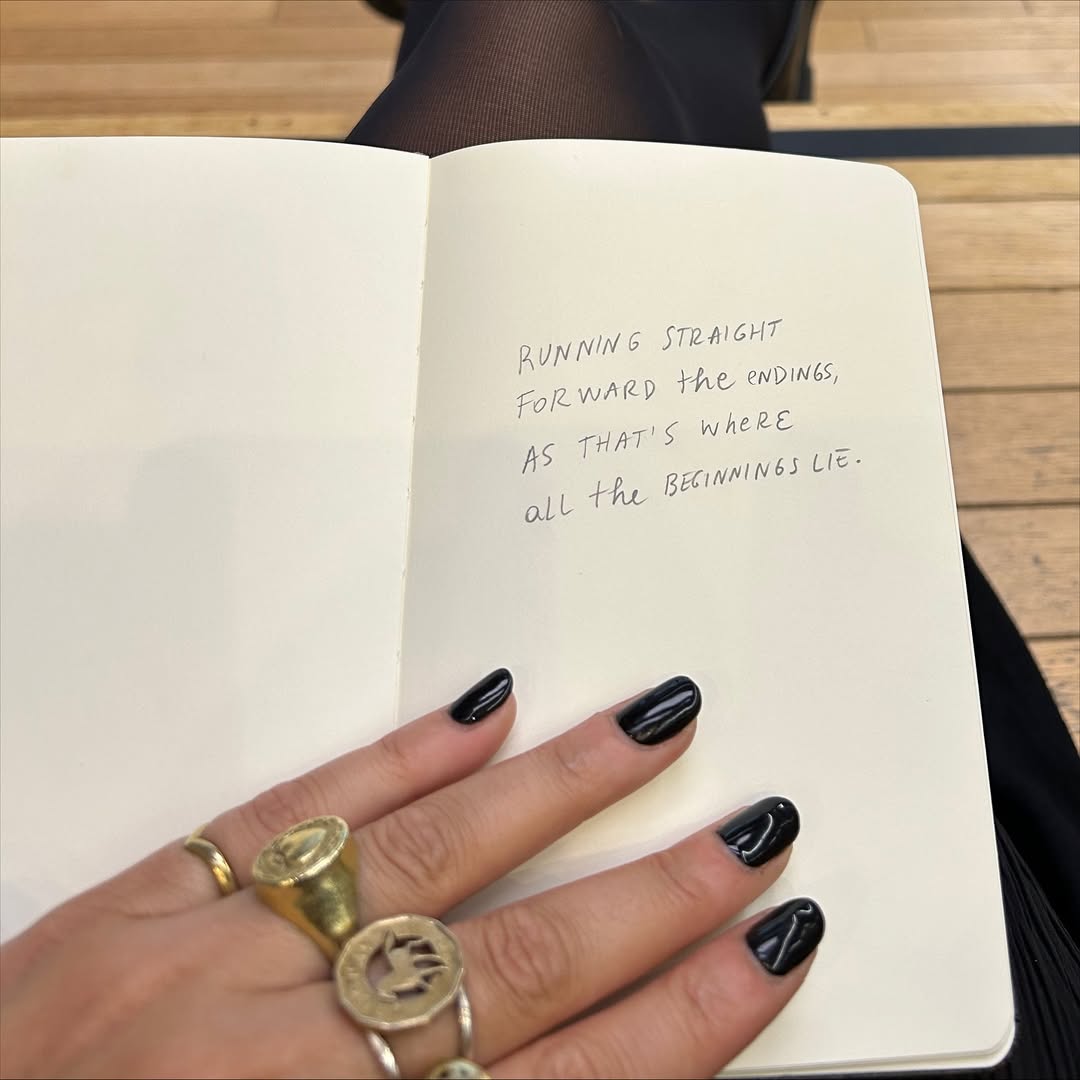 RUNNING STRAIGHT
FORWARD the eNDINGS,
AS THAT'S wheRE
all the BEGINNINGS LIE.